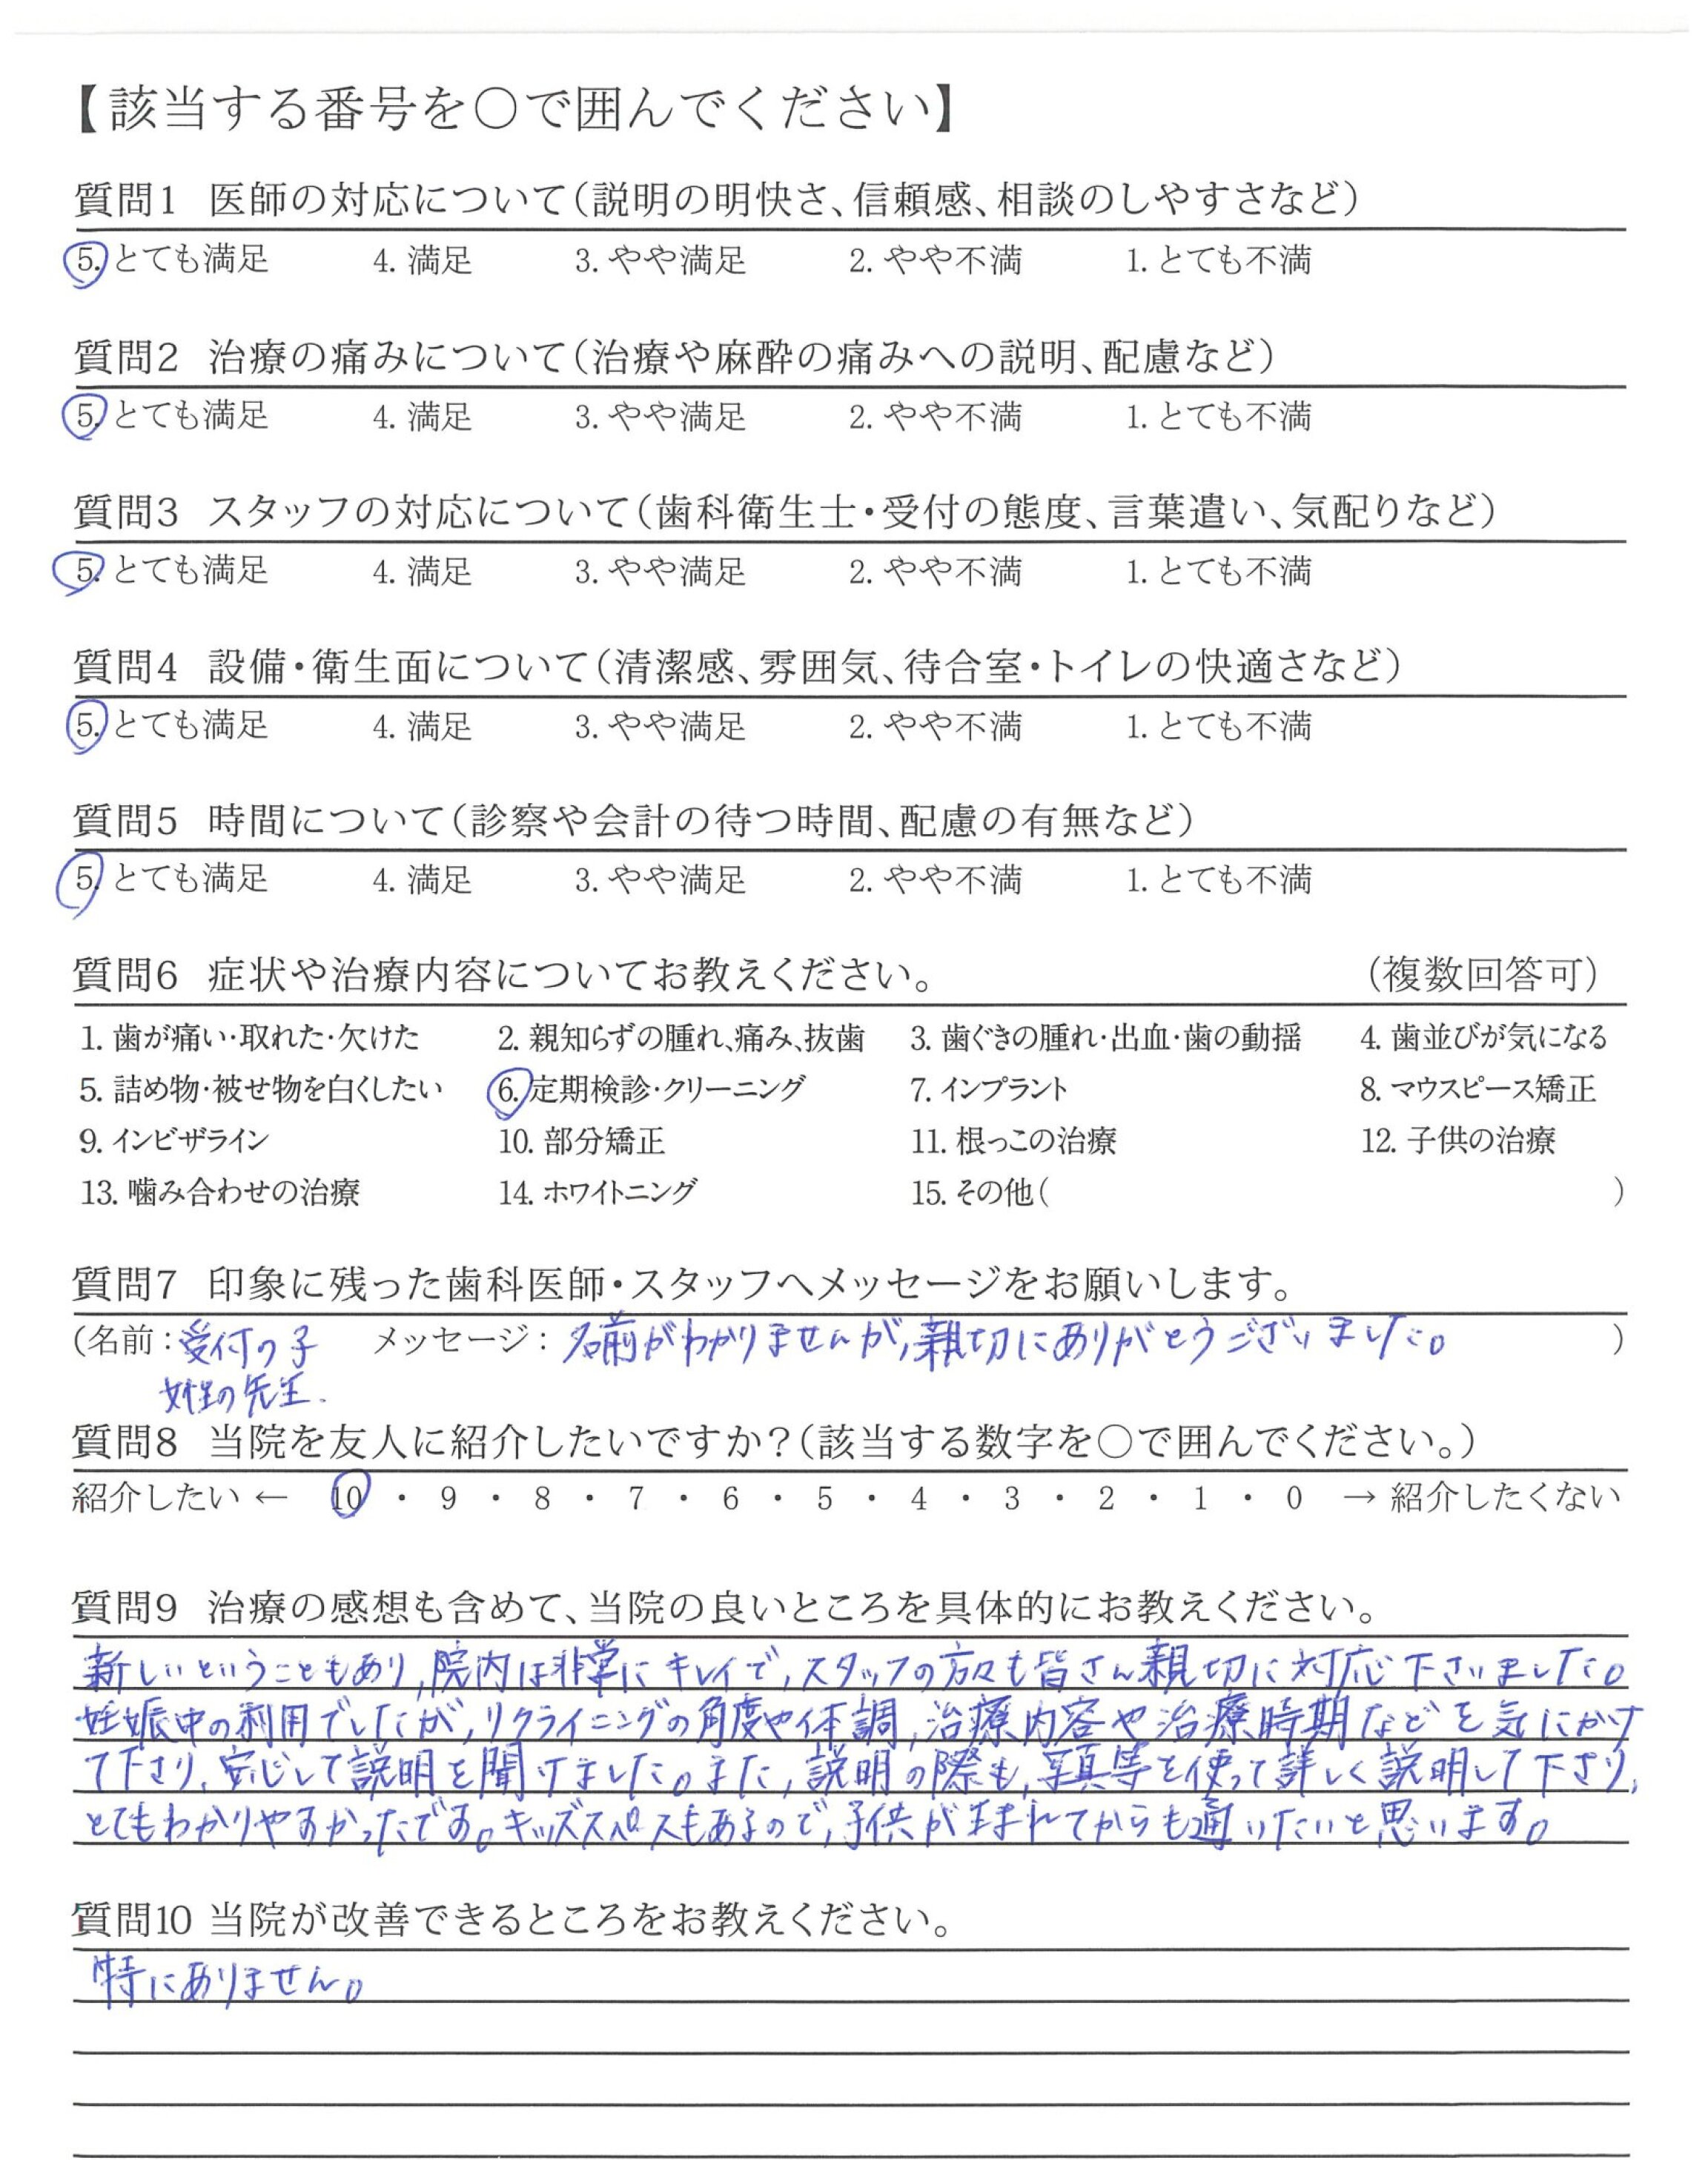 【該当する番号を○で囲んでください】
質問1 医師の対応について(説明の明快さ、信頼感、相談のしやすさなど)
5. とても満足 4. 満足 3. やや満足 2. やや不満 1. とても不満
質問2 治療の痛みについて(治療や麻酔の痛みへの説明、配慮など)
5. とても満足 4. 満足 3. やや満足 2. やや不満 1. とても不満
質問3 スタッフの対応について(歯科衛生士・受付の態度、言葉遣い、気配りなど)
5. とても満足 4. 満足 3. やや満足 2. やや不満 1. とても不満
質問4 設備・衛生面について(清潔感、雰囲気、待合室・トイレの快適さなど)
5. とても満足 4. 満足 3. やや満足 2. やや不満 1. とても不満
質問5 時間について(診察や会計の待つ時間、配慮の有無など)
5. とても満足 4. 満足 3. やや満足 2. やや不満 1. とても不満
質問6 症状や治療内容についてお教えください。 (複数回答可)
1. 歯が痛い・取れた・欠けた 2. 親知らずの腫れ、痛み、抜歯 3. 歯ぐきの腫れ・出血・歯の動揺 4. 歯並びが気になる
5. 詰め物・被せ物を白くしたい 6. 定期検診・クリーニング 7. インプラント 8. マウスピース矯正
9. インビザライン 10. 部分矯正 11. 根っこの治療 12. 子供の治療
13. 噛み合わせの治療 14. ホワイトニング 15. その他( )
質問7 印象に残った歯科医師・スタッフへメッセージをお願いします。
(名前:受付の子 メッセージ:名前がわかりませんが,親切にありがとうございました。 )
女性の先生.
質問8 当院を友人に紹介したいですか?(該当する数字を○で囲んでください。)
紹介したい ← 10 ・ 9 ・ 8 ・ 7 ・ 6 ・ 5 ・ 4 ・ 3 ・ 2 ・ 1 ・ 0 → 紹介したくない
質問9 治療の感想も含めて、当院の良いところを具体的にお教えください。
新しいということもあり,院内は非常にキレイで,スタッフの方々も皆さん親切に対応下さいました。
妊娠中の利用でしたが,リクライニングの角度や体調,治療内容や治療時期などを気にかけ
て下さり,安心して説明を聞けました。また,説明の際も,写真等を使って詳しく説明して下さり,
とてもわかりやすかったです。キッズスペースもあるので,子供が生まれてからも通いたいと思います。
質問10 当院が改善できるところをお教えください。
特にありません。